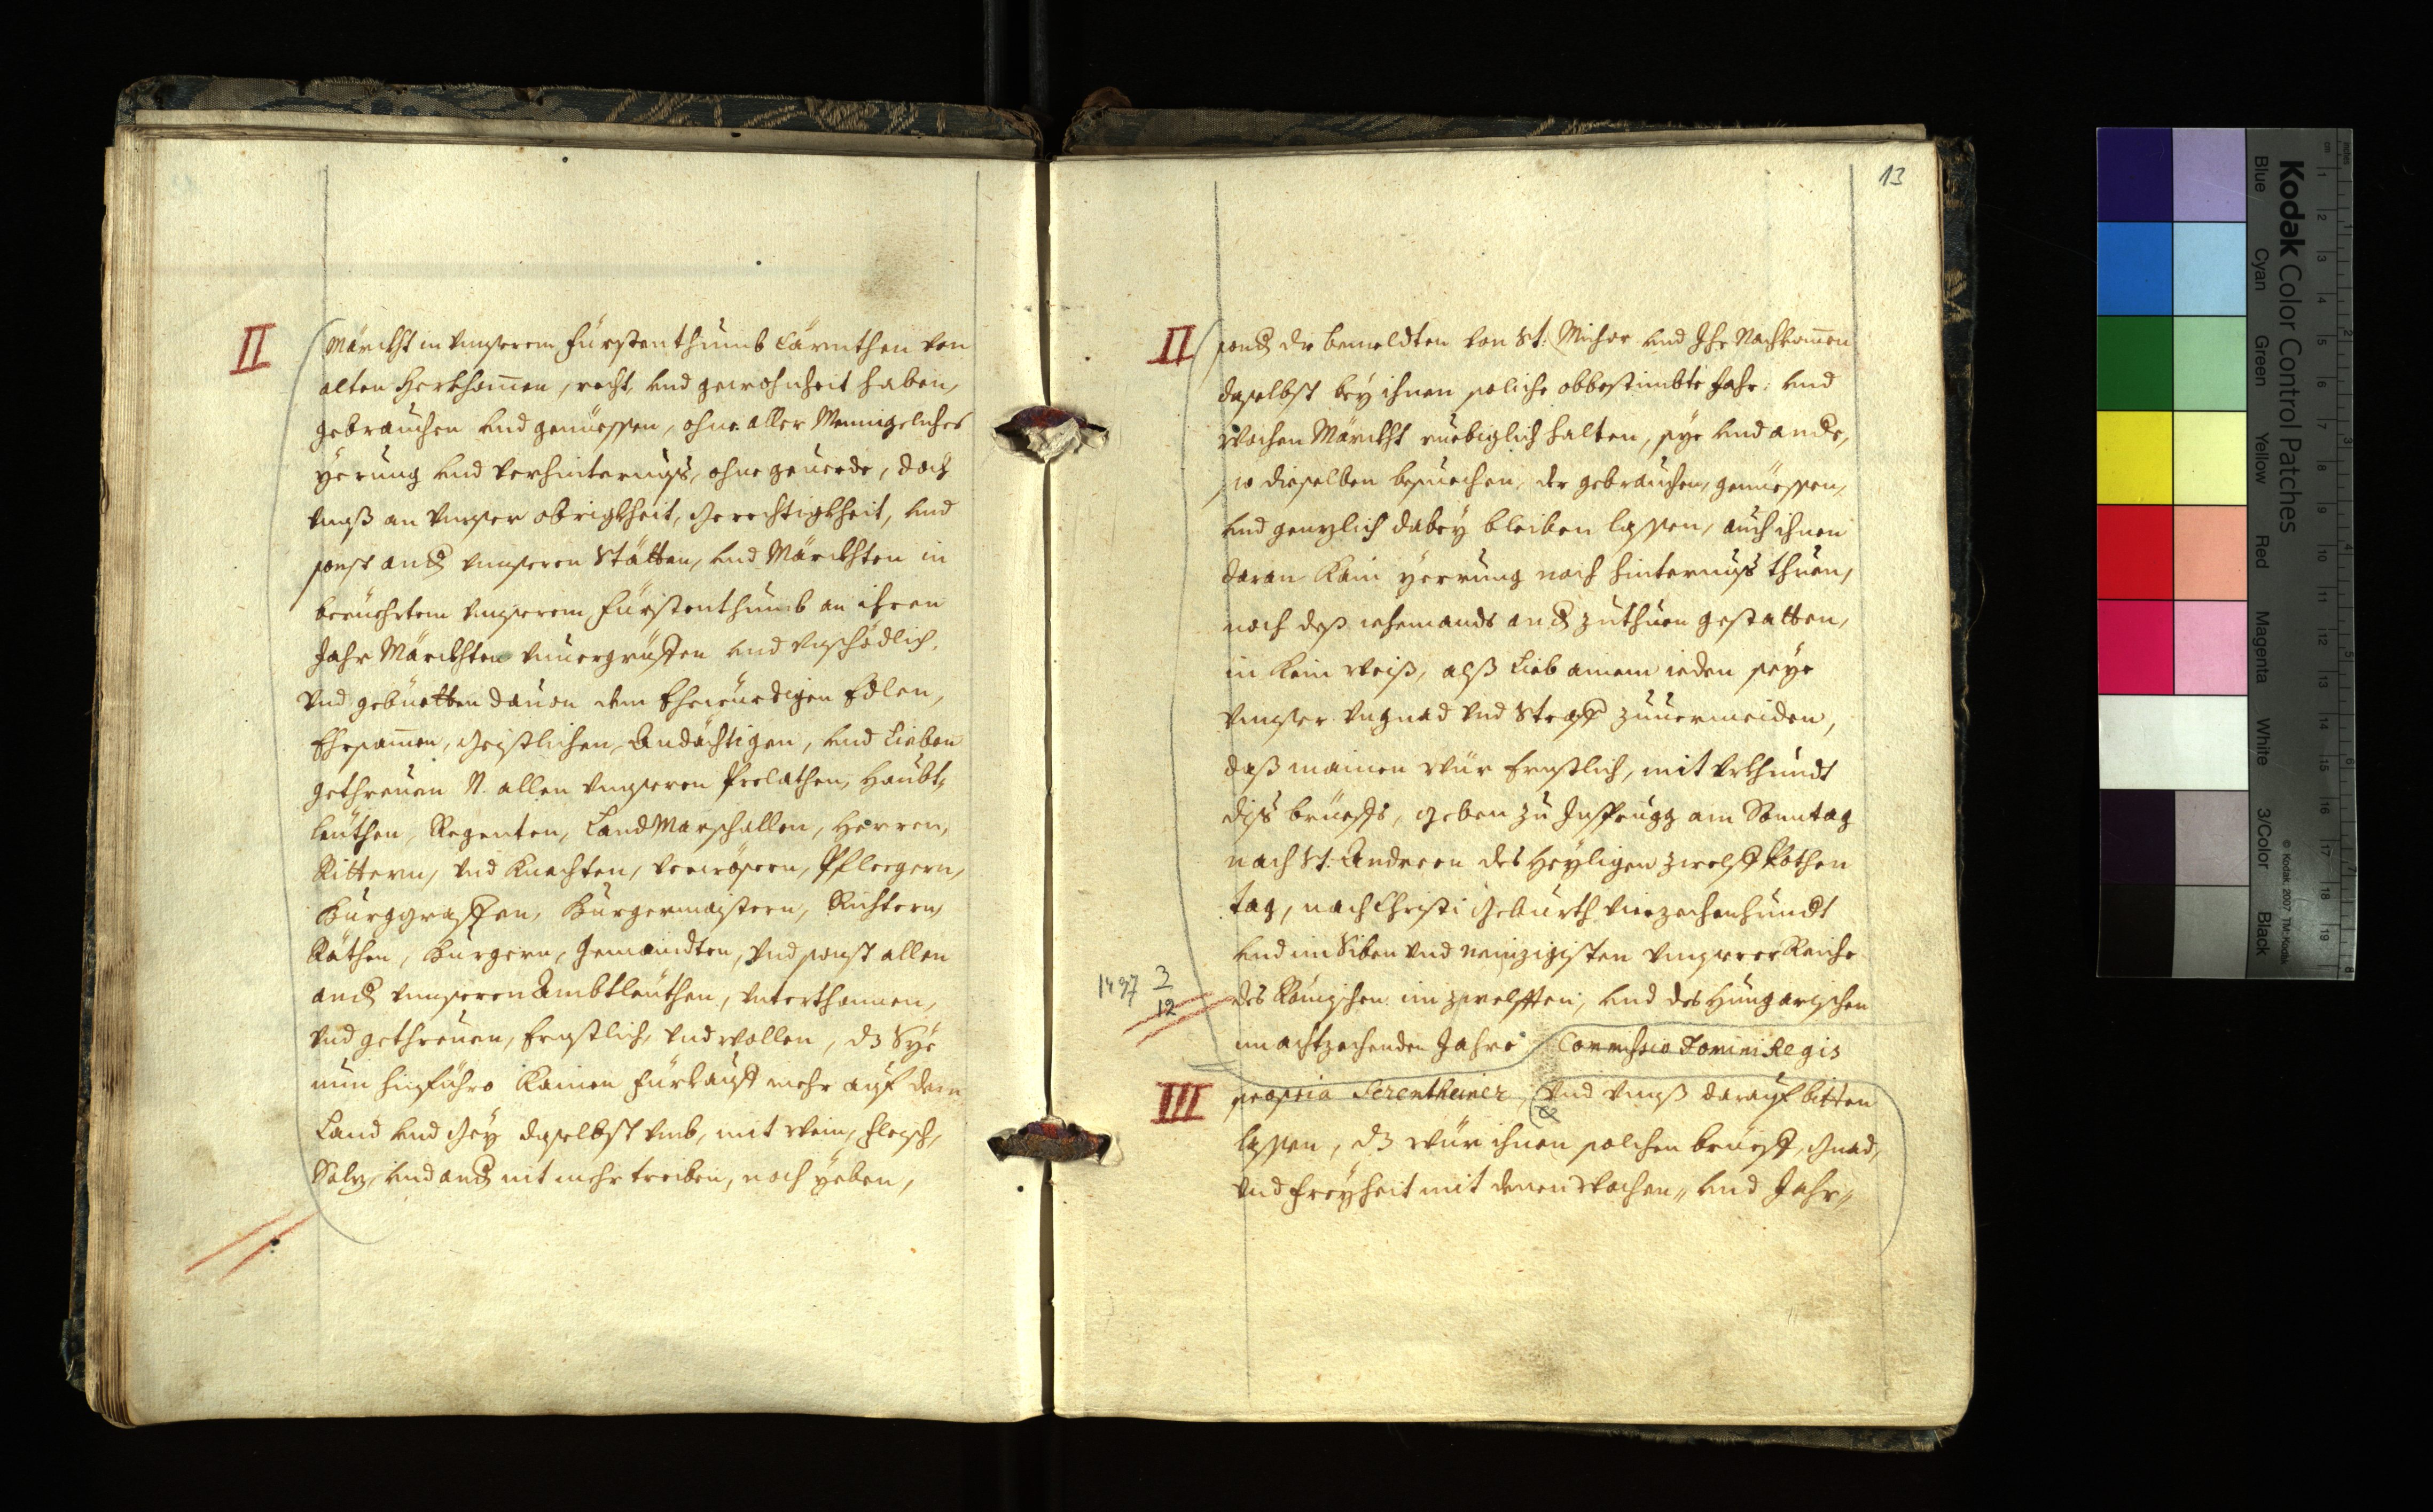 II
Märckht in vnserem Fürstenthumb Cärnthen von
alten Herkhomen, recht, vnd gewohnheit haben,
gebrauchen vnd genüessen, ohne aller Menigeliches
yrrung vnd verhinternuß, ohne geuerde, doch
vnß an vnser obrigkheit, Gerechtigkheit, vnd
sonst and vnseren Stätten, vnd Märckhten in
berüehrtem vnserem Fürstenthumb an ihren
Jahr Märckhten vnuergrüffen vnd vnschödlich.
Vnd gebüetten dauon dem Ehrwürdigen Edlen,
Ehrsamen, Geistlichen, Andächtigen, vnd Lieben
gethreuen N. allen vnseren Prelathen, Haubt,
leüthen, Regenten, LandMarschallen, Herren,
Rittern, vnd Knechten, verwösern, Pflegern,
Burggraffen, Burgermaistern, Richtern,
Räthen, Burgern, Gemaindten, vnd sonst allen
and vnseren Ambtleüthen, vnterthannen,
vnd gethreuen, Ernstlich, vnd wollen, dz Sye
nun hinführo Kainen fürkauff mehr auf dem
Land vnd Gey daselbst vmb, mit wein, fleisch,
Salz, vnd and nit mehr treiben, noch yeben,
13
II
sond die bemeldten von St: Micher vnd Ihr Nachkomen
daselbst bey ihnen soliche obbestimbte Jahr: vnd
Wochen Märckht ruebiglich halten, sye vnd ande,
so dieselben besuechen, der gebrauchen, genüessen,
vnd genzlich dabey bleiben lassen, auch ihnen
daran Kain yrrung noch hinternuß thuen,
noch deß iehemands and zuthuen gestatten,
in Kein weiß, alß Lieb ainem ieden seye
vnser vngnad vnd Straff zuuermeiden,
daß mainen wür Ernstlich, mit vrkhundt
diß brüeffs, Geben zu Insprugg am Sonntag
nach St: Andreen des Heyligen zwelff Pothen
tag, nach Christi Geburth vierzechenhundt
vnd im Siben vnd neinzigisten vnserer Reiche
1497 3
12
des Römischen im zwelfften, vnd des Hungarischen
im achtzechenden Jahre Commissio Domini Regis
III
propria Serentheiner, Vnd vnß darauf bitten
lassen, dz wür ihnen solchen brüeff, Gnad,
vnd freyheit mit denen Wochen,, vnd Jahr,,
Kodak Color Control Patches
© Kodak, 2007 TM: Kodak
Blue Cyan Green Yellow Red Magenta White 3/Color Black
inches 1 2 3 4 5 6 7 8
cm 1 2 3 4 5 6 7 8 9 10 11 12 13 14 15 16 17 18 19